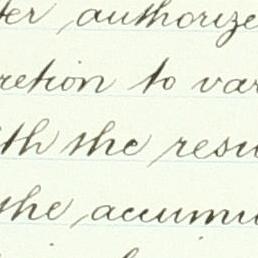 ter authorize
retion to var
ith the resu
the accumu